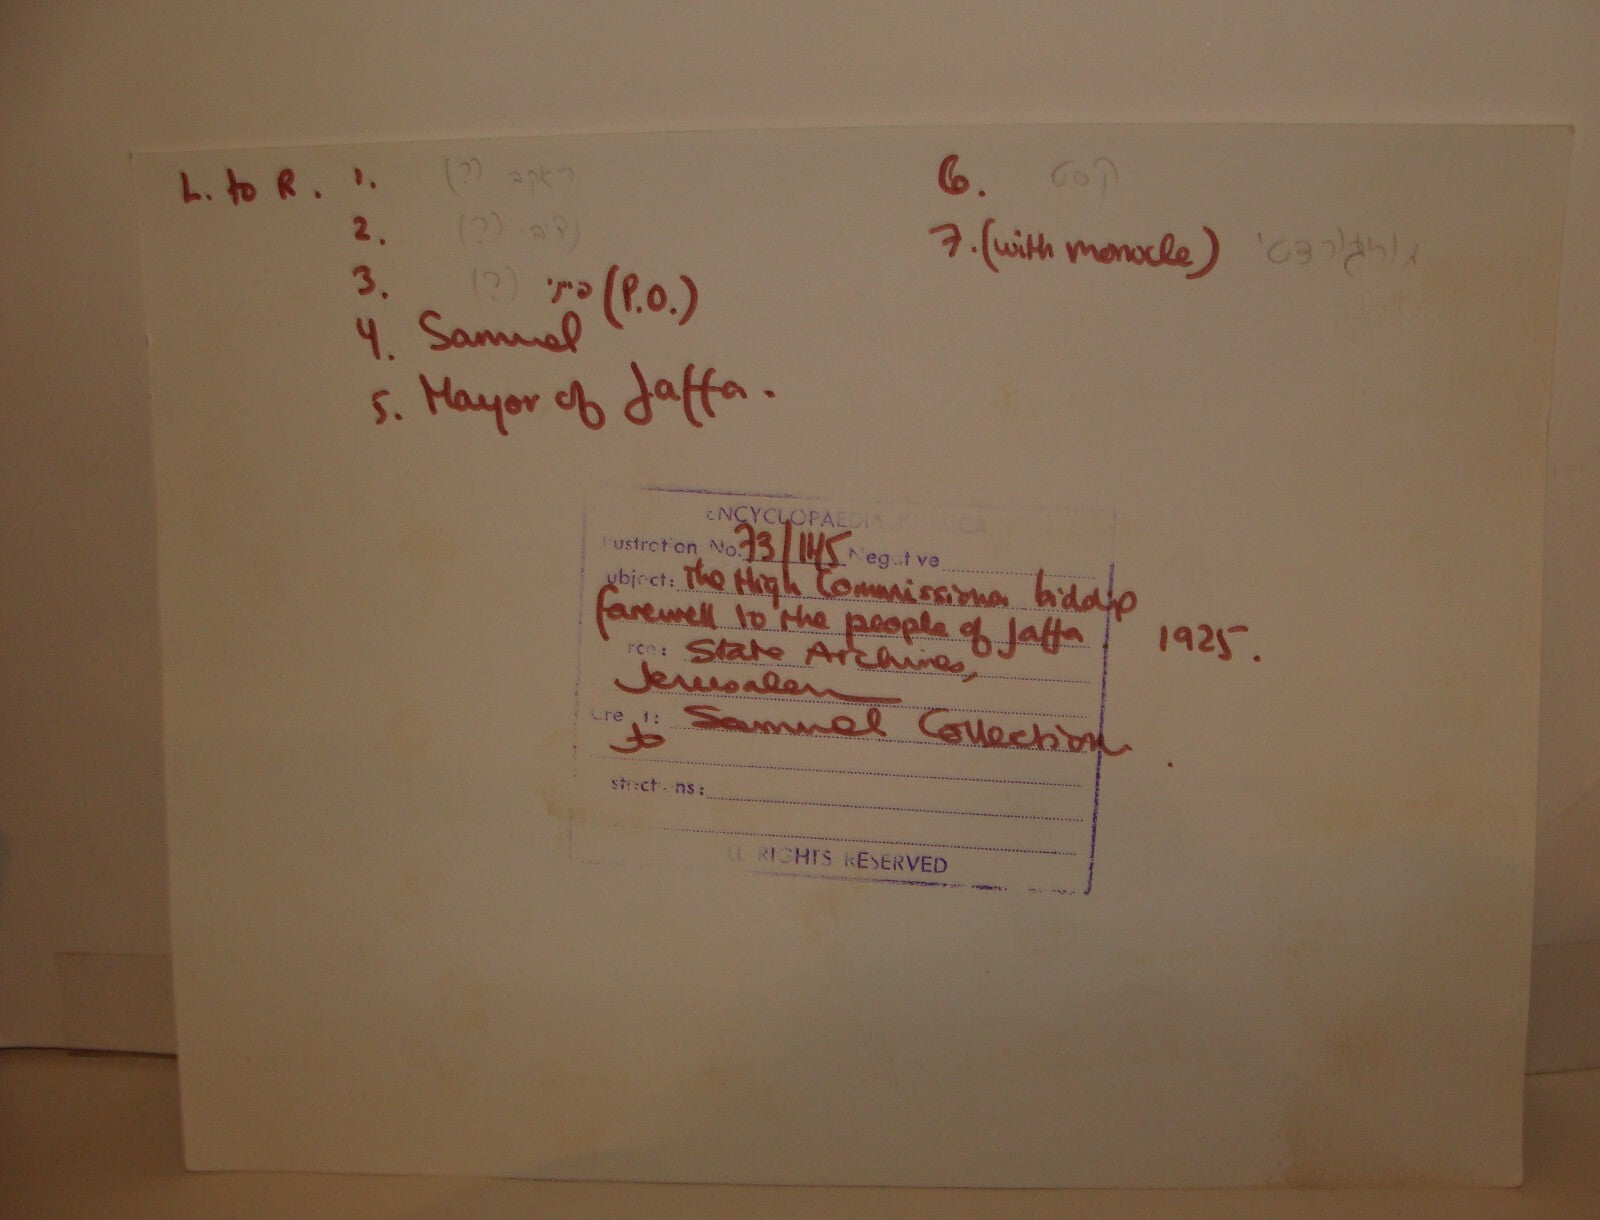 L. to R. 1. (?)
2. (?)
3. (?) (P.O.)
4. Samuel
5. Mayor of Jaffa.
6. קסט
7. (with monocle)
ENCYCLOPAEDIA JUDAICA
ustration No. 73/145 Negative
ubject: The High Commissioner bidding
farewell to the people of Jaffa 1925.
rce: State Archives,
Jerusalem
Cre i t: Samuel Collection
to
strictions:
LL RIGHTS RESERVED